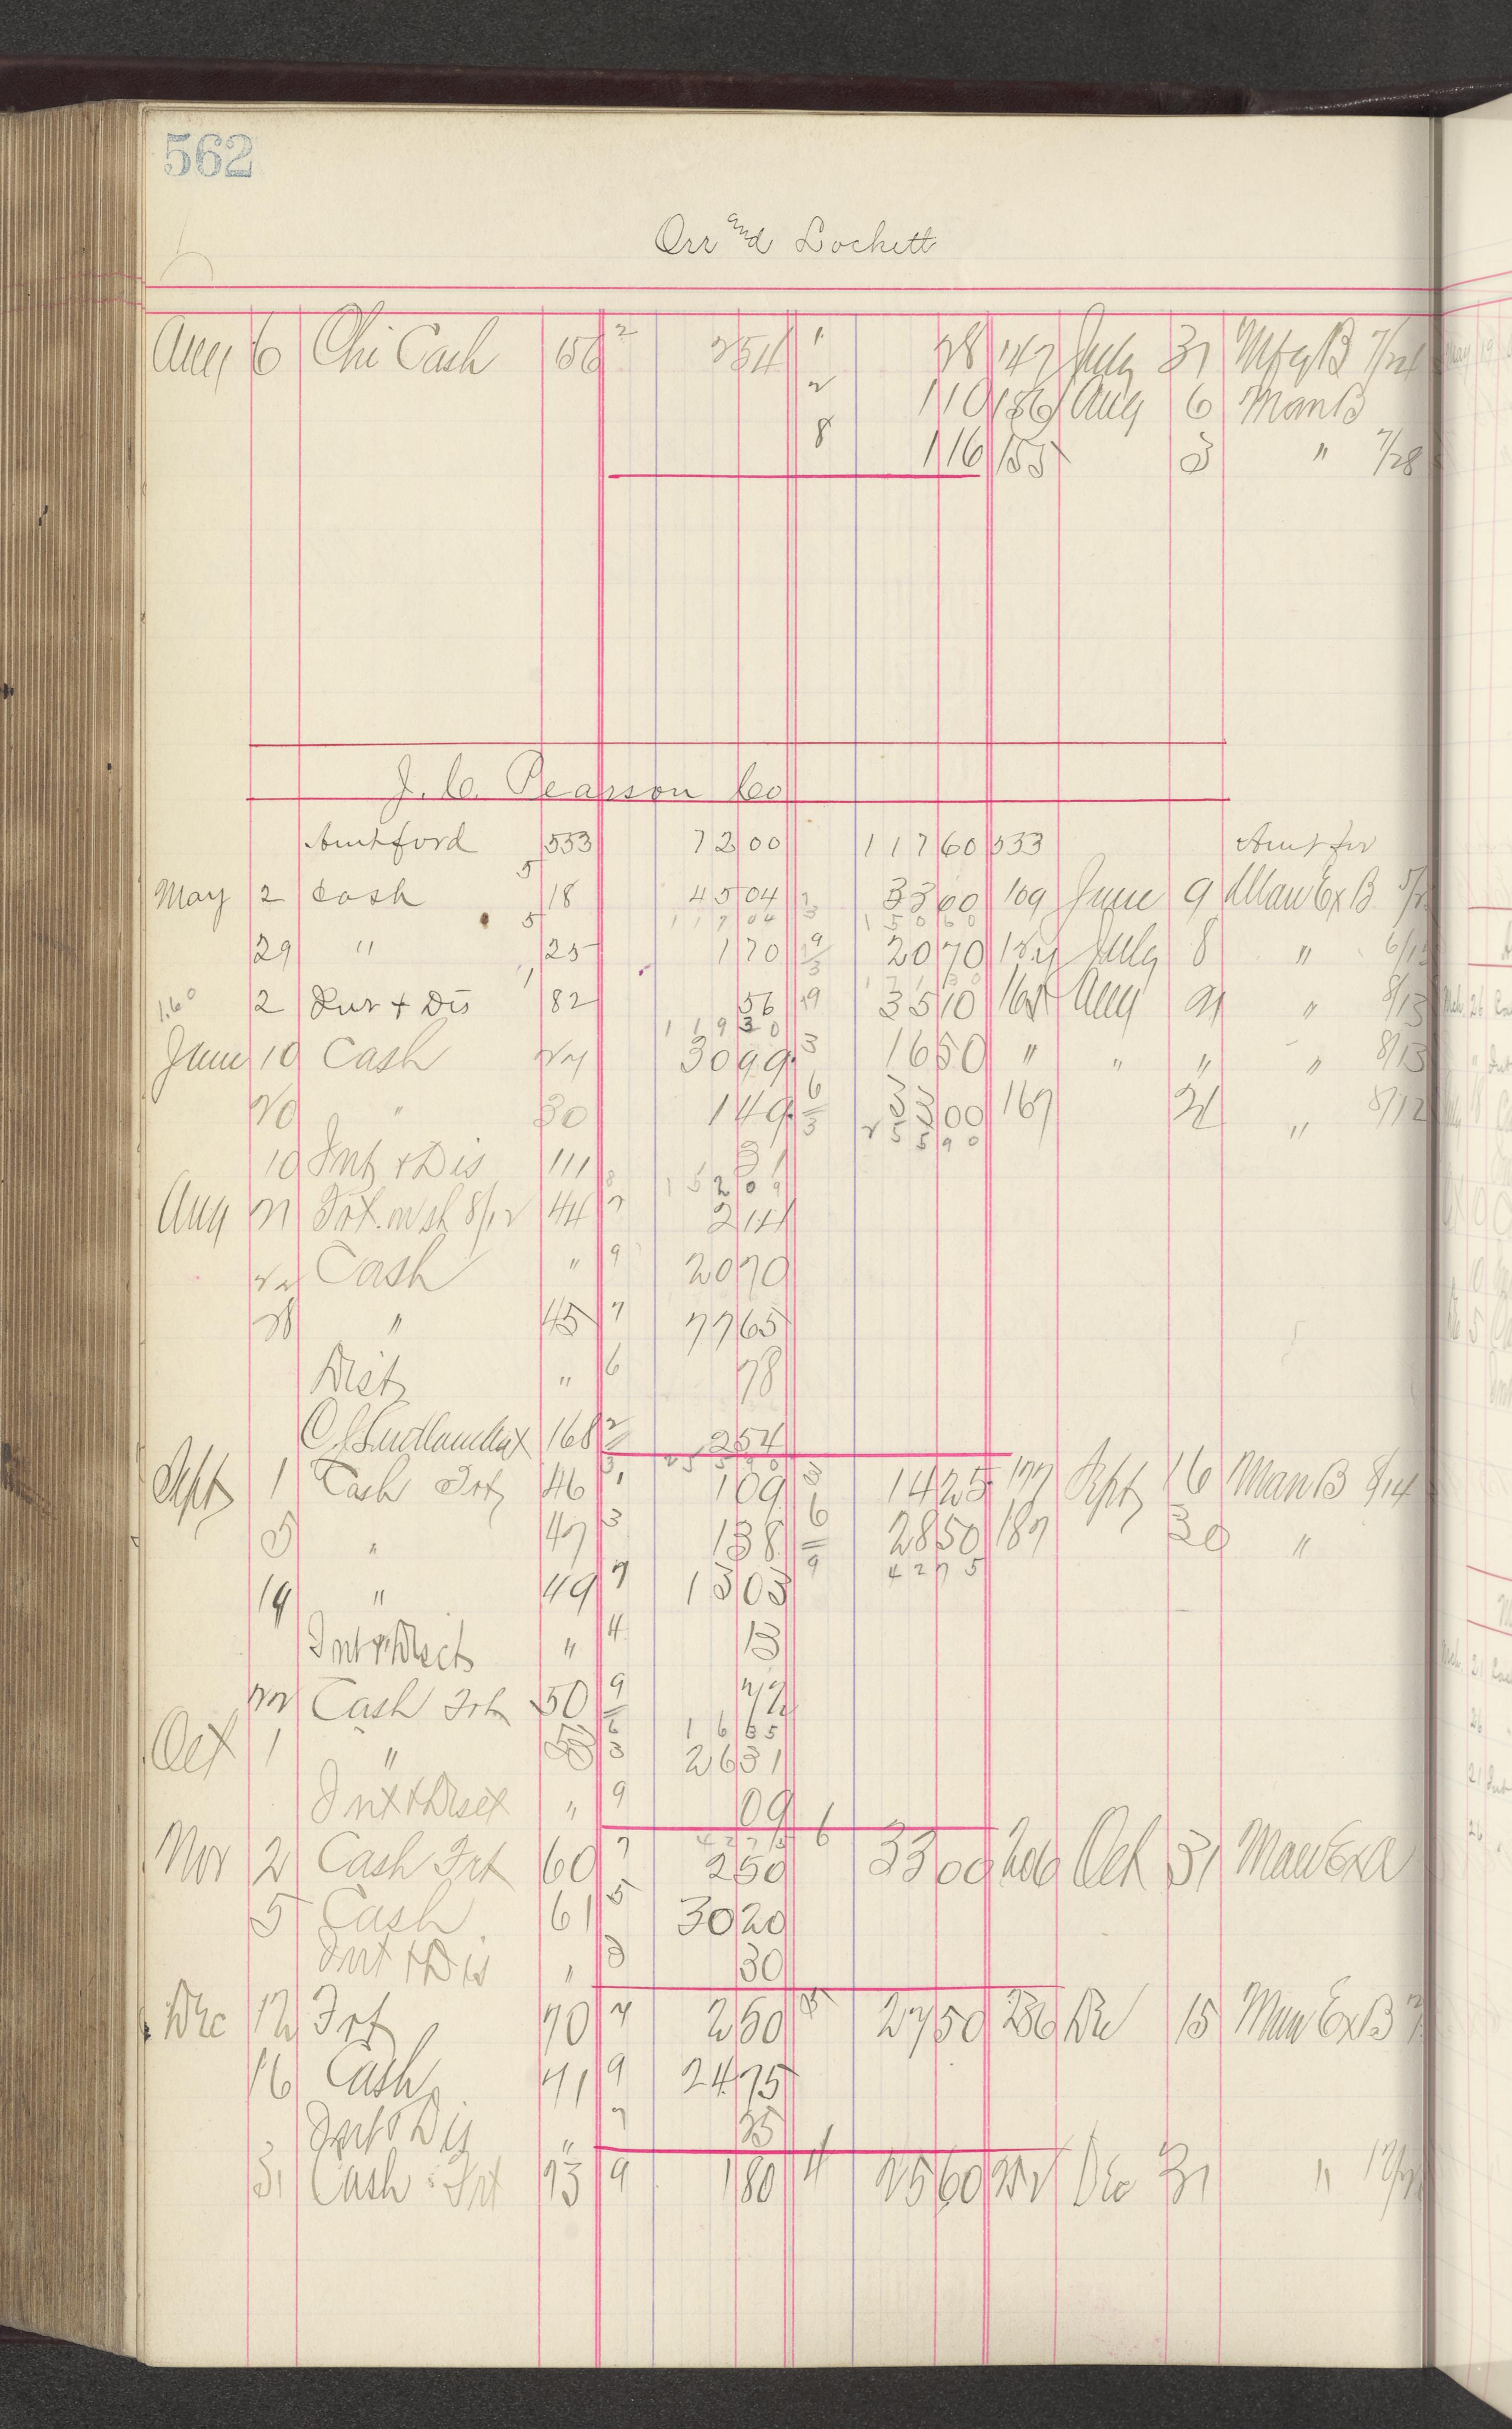 562
Orr and Lockett
Aug 6 Chi Cash 156 2 254 1 28 147 July 31 Mfg B 7/24
2 110 156 Aug 6 Man B
8 116 155 3 " 7/28
J. C. Pearson Co
Amtford 533 72 00 117 60 533 Amt for
May 2 Cash 5 18 45 04 33 60 109 June 9 Man Ex B
117 04 150 60
29 " 5 25 1 70 9 20 70 July 8 "
2 Int + Dis 1 82 56 9 35 10 Aug 21 " 8/13
119 30
June 10 Cash 30 99 3 16 50 " " " " 8/13
20 " 30 1 49 6 33 00 167 21 " 8/12
3 255 90
10 Int & Dis 111 31
152 09
Aug 21 Frt. 8/12 44 2 2 14
Cash " 9 20 70
28 " 45 7 77 65
Dist " 6 78
168 2 2 54
255 90
Sept 1 Cash Frt 46 1 1 09 3 14 25 177 Sept 16 Man B 8/14
5 " 47 3 1 38 6 28 50 187 30 "
9 42 75
19 " 49 7 13 03
Int & Disct " 4 13
22 Cash Frt 50 9 72
16 65
Oct 1 " 3 26 31
Int & Disct " 9 09
42 75
Nov 2 Cash Frt 60 7 2 50 6 33 00 206 Oct 31 Man Ex B
5 Cash 61 5 30 20
Int & Dis " 3 30
Dec 12 Frt 70 7 2 50 5 27 50 236 Dec 15 Man Ex B
16 Cash 71 9 24 75
Int & Dis " 7 25
31 Cash Frt 73 9 1 80 4 25 60 252 Dec 31 "